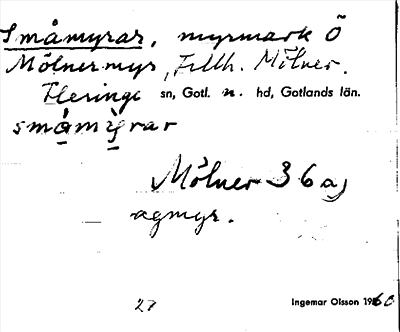 Småmyrar, myrmark Ö
Mölnermyr, Tillh. Mölner.
Fleringe sn, Gotl. n. hd, Gotlands län.
småmyrar
Mölner 36a)
agmyr.
27
Ingemar Olsson 1960